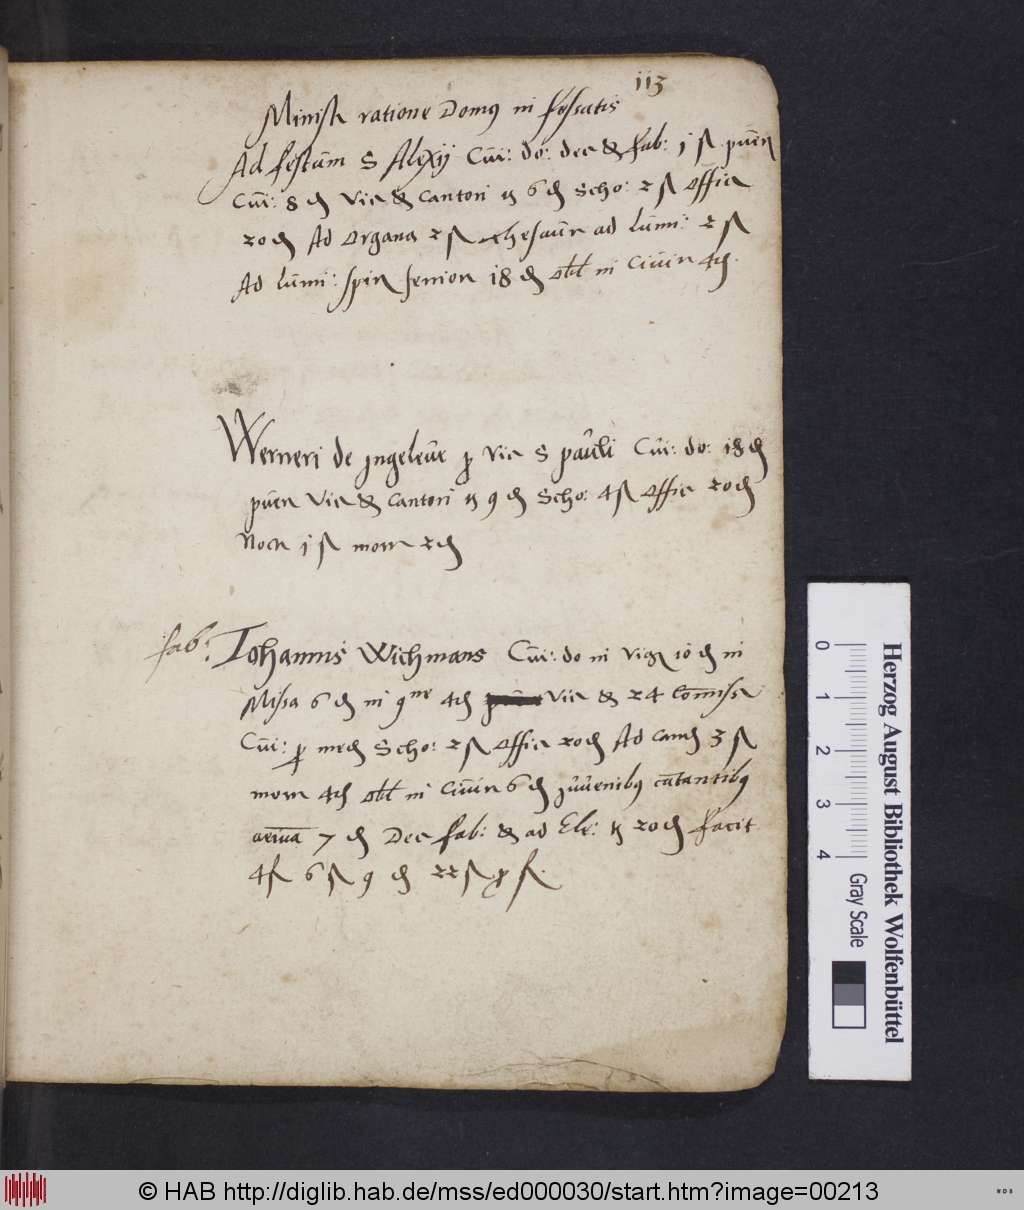 113
Minist ratione Domus in fossatis
Ad festum S Alexij Cui: do: dec & fab: j ß puer
Cui: 8 ₰ Vic & Cantori 6 ₰ Scho: 2 ß Offic
20 ₰ Ad Organa 2 ß thesaur ad lumi: 2 ß
Ad lumi: senior 18 ₰ obl in Civir 4 ₰
Werneri de jngeleve p Vic S pauli Cui: do: 18 ₰
puer Vic & Cantori 9 ₰ Scho: 4 ß Offic 20 ₰
Noctr j ß morr 2 ₰
fab: Johannis Wichmans Cui: do in vig 10 ₰ in
Missa 6 ₰ in 9ne 4 ₰ Vic & 24 Comiss
Cui: p med Scho: 2 ß Offic 20 ₰ Ad cand 3 ß
morr 4 ₰ obl in Civir 6 ₰ juvenibus cantantibus
7 ₰ Dec fab: & ad Ele: 20 ₰ facit
4 6 ß 9 ₰ 22 ß
Herzog August Bibliothek Wolfenbüttel
0 1 2 3 4 Gray Scale
© HAB http://diglib.hab.de/mss/ed000030/start.htm?image=00213